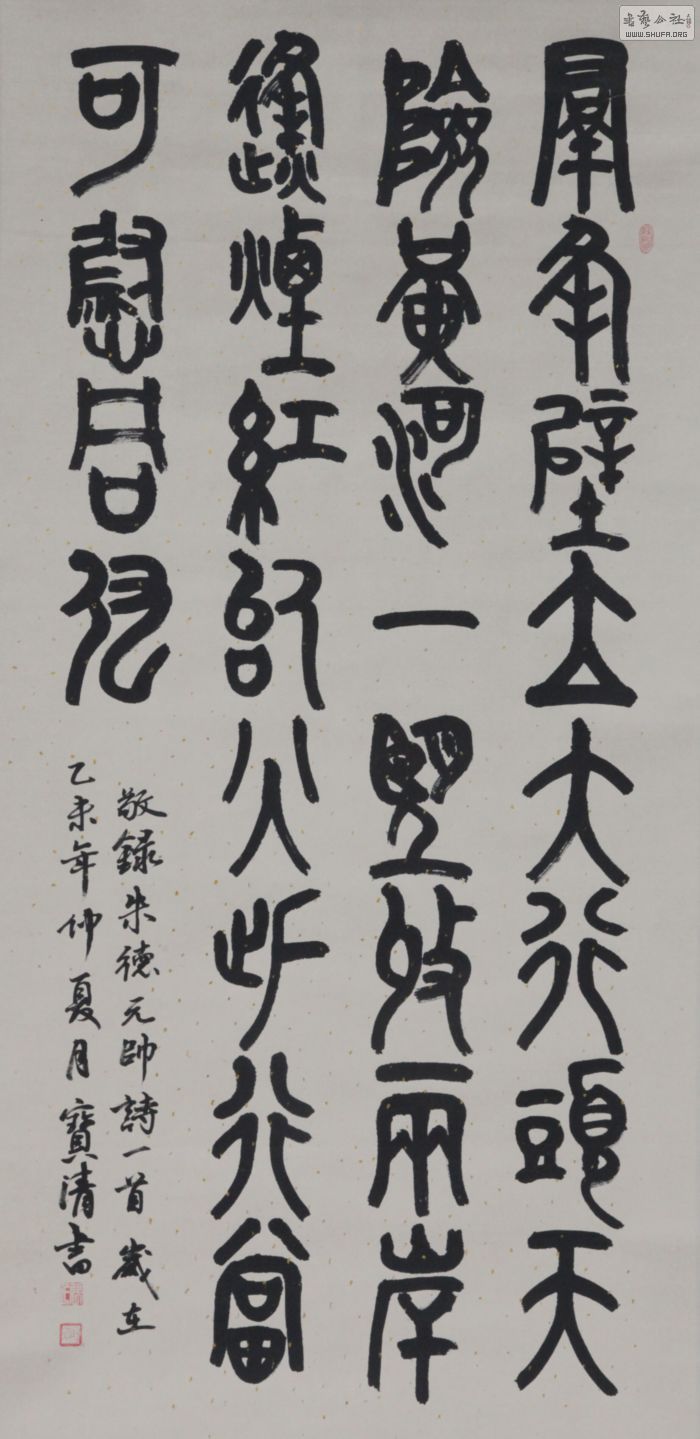 羣峰壁立大行頭天
險黃河一望收兩岸
烽煙紅似火此行當
可慰同仇
敬錄朱德元帥詩一首歲在
乙未年仲夏月寶清書
書藝公社
WWW.SHUFA.ORG